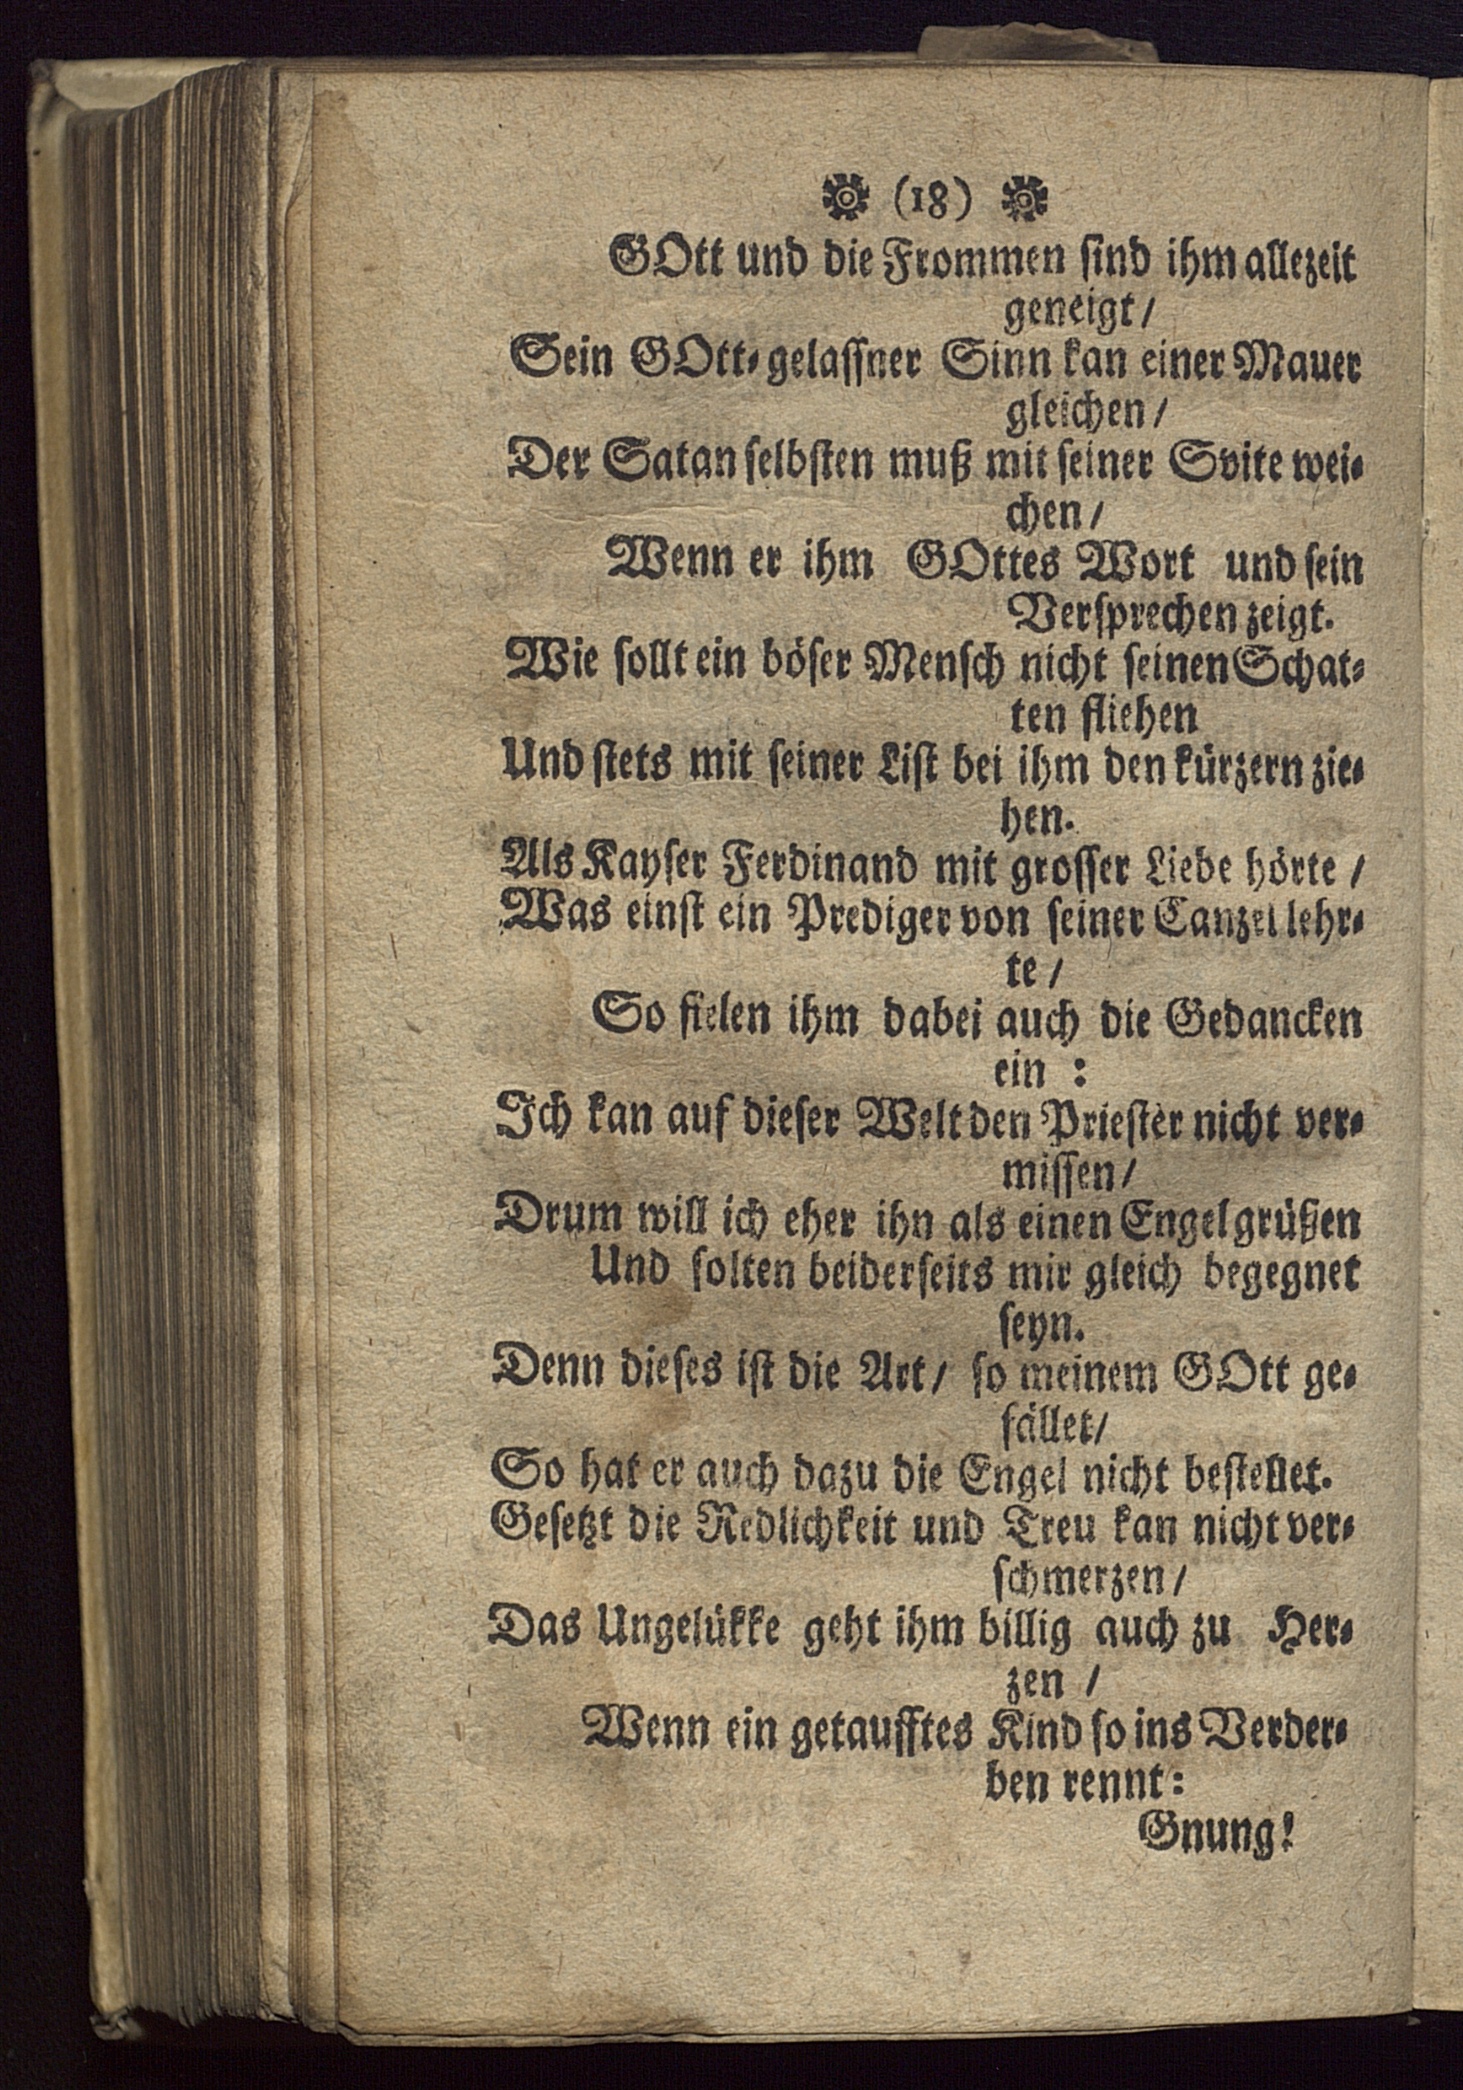 (18)
GOtt und die Frommen sind ihm allezeit
geneigt /
Sein GOtt-gelassner Sinn kan einer Mauer
gleichen /
Der Satan selbsten muß mit seiner Svite wei-
chen /
Wenn er ihm GOttes Wort und sein
Versprechen zeigt.
Wie sollt ein böser Mensch nicht seinen Schat-
ten fliehen
Und stets mit seiner List bei ihm den kürzern zie-
hen.
Als Kayser Ferdinand mit grosser Liebe hörte /
Was einst ein Prediger von seiner Canzel lehr-
te /
So fielen ihm dabei auch die Gedancken
ein :
Ich kan auf dieser Welt den Priester nicht ver-
missen /
Drum will ich eher ihn als einen Engel grüßen
Und solten beiderseits mir gleich begegnet
seyn.
Denn dieses ist die Art / so meinem GOtt ge-
fället /
So hat er auch dazu die Engel nicht bestellet.
Gesetzt die Redlichkeit und Treu kan nicht ver-
schmerzen /
Das Ungelükke geht ihm billig auch zu Her-
zen /
Wenn ein getaufftes Kind so ins Verder-
ben rennt :
Gnung!